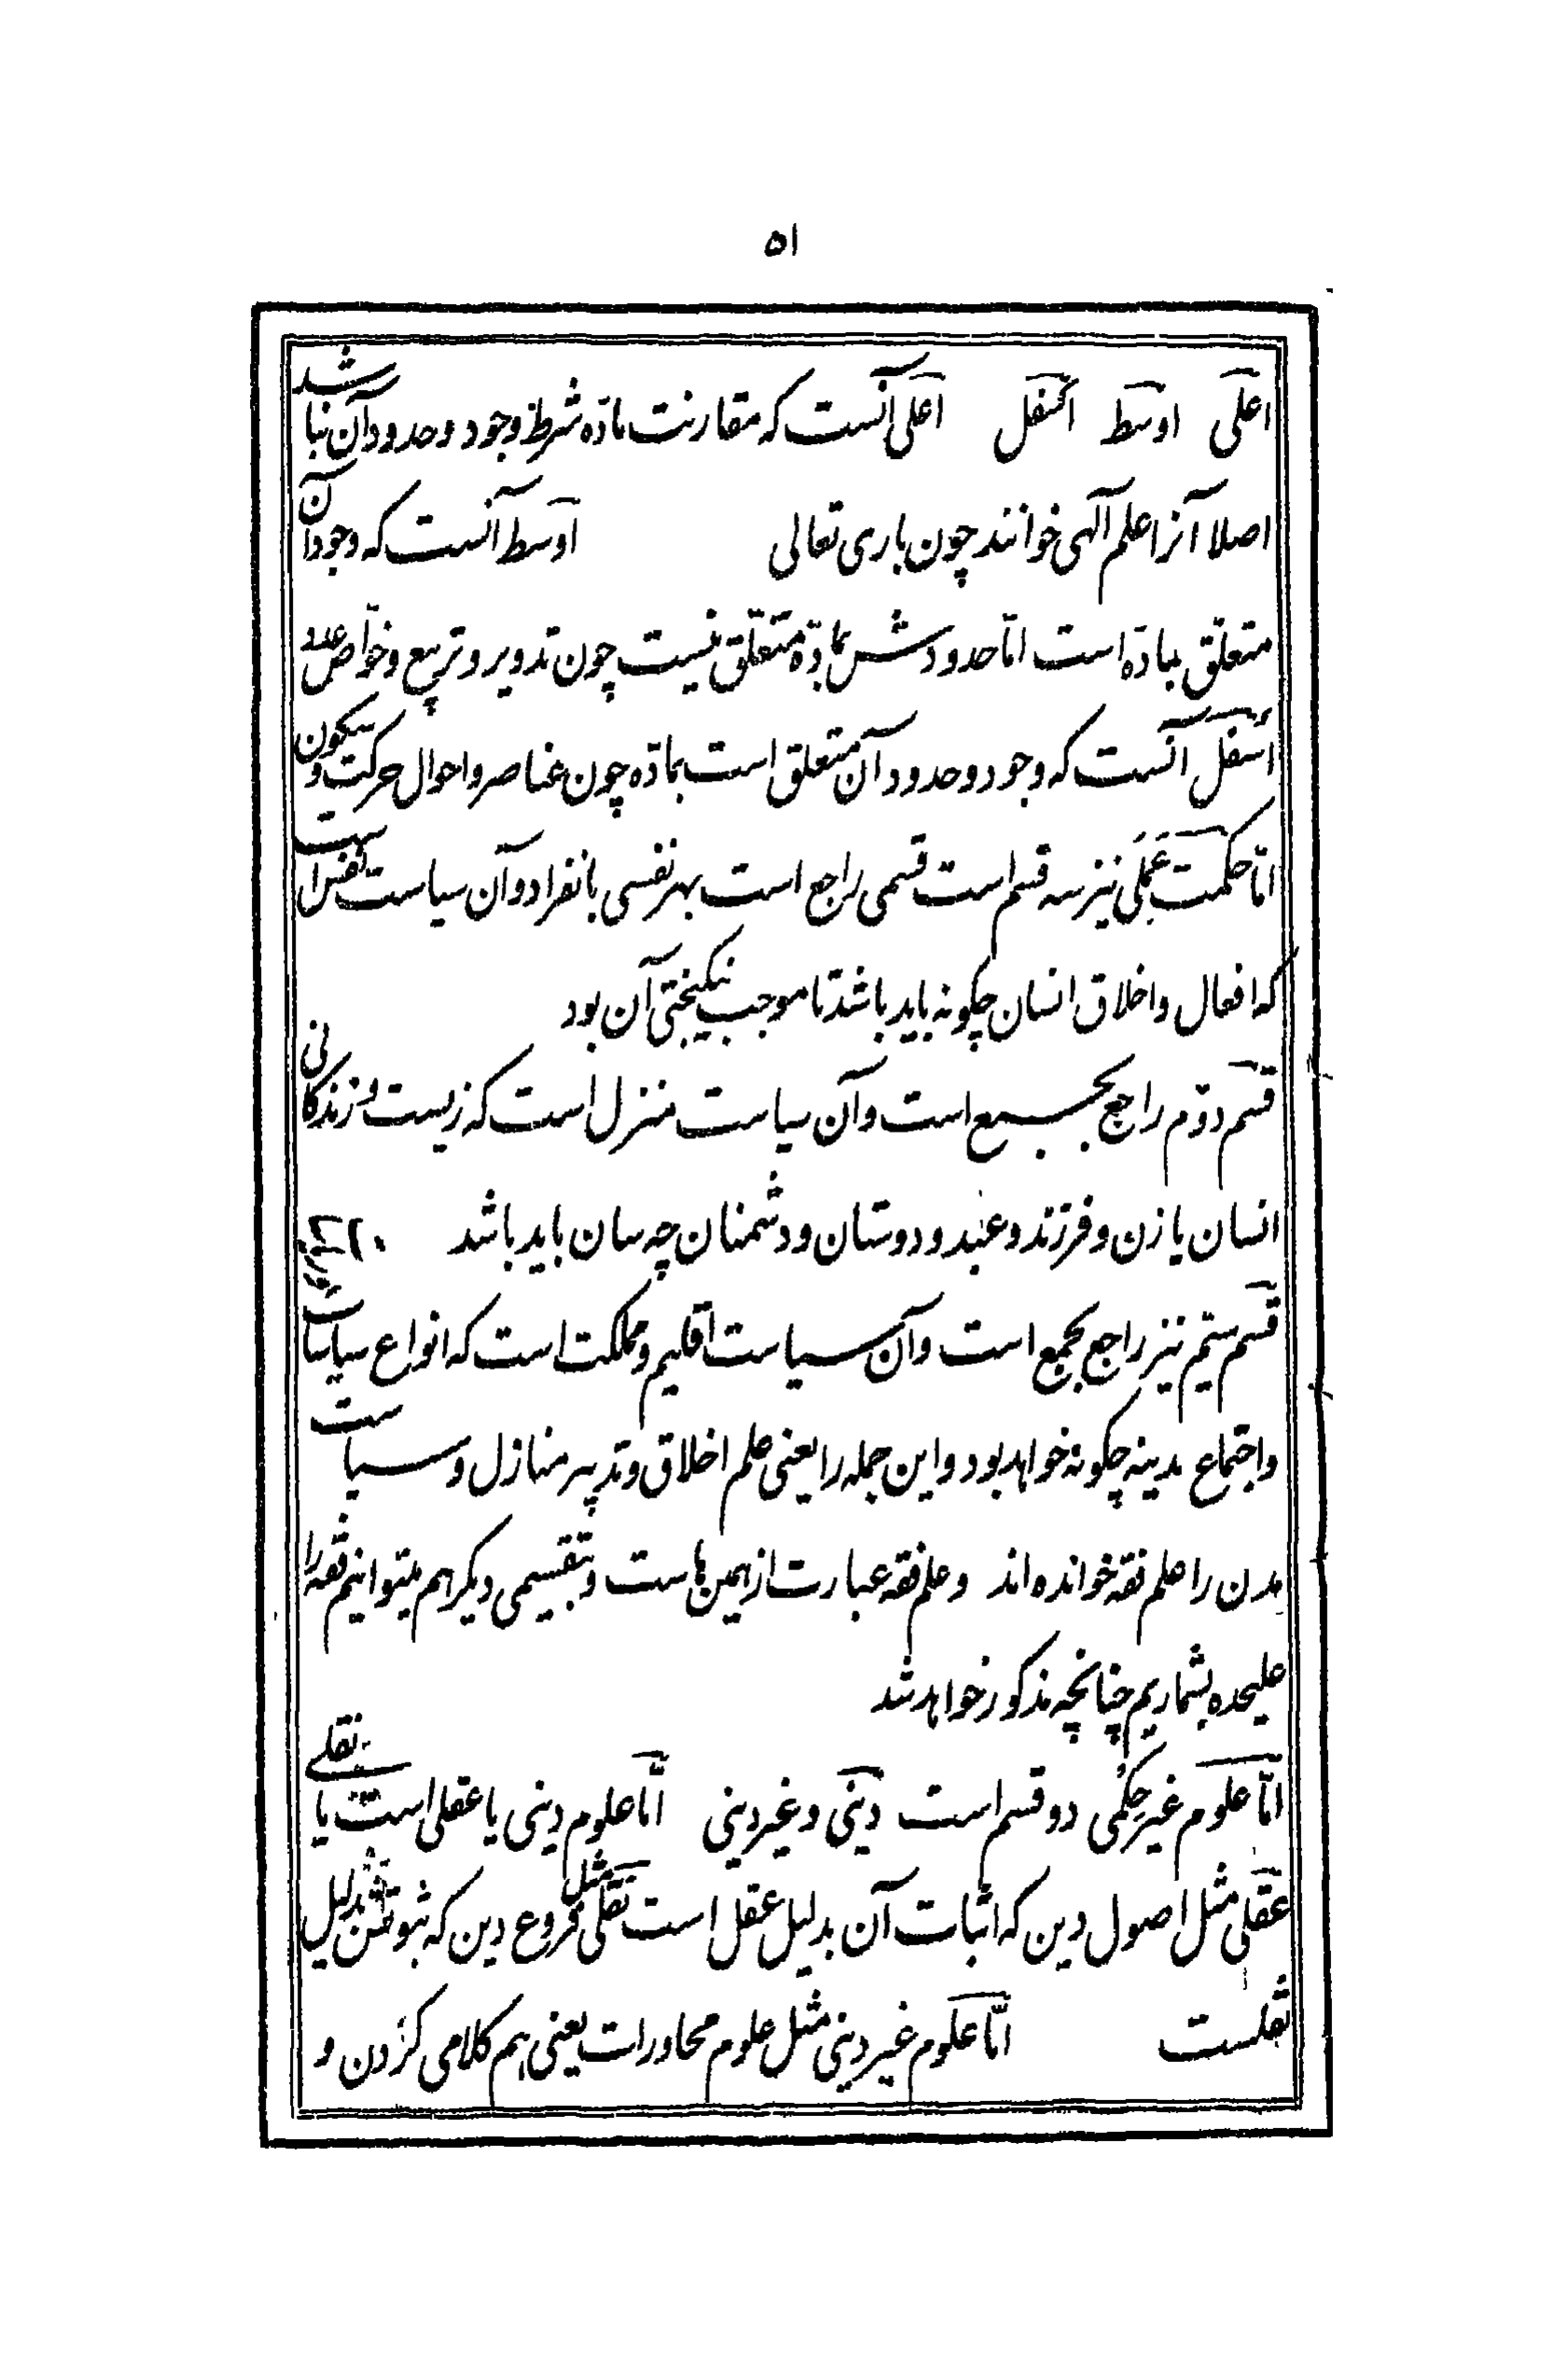 ۵۱
اعلی اوسط اسفل اعلی آنست که مقارنت مادّه شرط وجود و حدود آن نباشد
اصلا آنرا علم آلهی خوانند چون باری تعالی اوسط آنست که وجود آن
متعلّق بمادّه است امّا حدودش بمادّه متعلّق نیست چون تدویر و تربیع و خواص عدد
اسفل آنست که وجود و حدود آن متعلق است بمادّه چون عناصر و احوال حرکت و سکون
امّا حکمت عملی نیز سه قسم است قسمی راجع است بهر نفسی بانفراد و آن سیاست نفس است
که افعال و اخلاق انسان چکونه باید باشد تا موجب نیکبختی آن بود
قسم دوّم راجع بجمع است و آن سیاست منزل است که زیست و زندکانی
انسان با زن و فرزند و عبد و دوستان و دشمنان چه سان باید باشد
قسم سیّم نیز راجع بجمع است و آن سیاست اقلیم و مملکت است که انواع سیاسات
و اجتماع مدینه چکونه خواهد بود و این جمله را یعنی علم اخلاق و تدبیر منازل و سیاست
مدن را علم فقه خوانده اند و علم فقه عبارت از همین هاست و بتقسیمی دیکر هم میتوانیم فقه را
علیحده بشماریم چنانچه مذکور خواهد شد
امّا علوم غیر حکمی دو قسم است دینی و غیر دینی امّا علوم دینی یا عقلی است یا نقلی
عقلی مثل اصول دین که اثبات آن بدلیل عقل است نقلی مثل فروع دین که ثبوتش بدلیل
نقلست امّا علوم غیر دینی مثل علوم محاورات یعنی هم کلامی کردن و